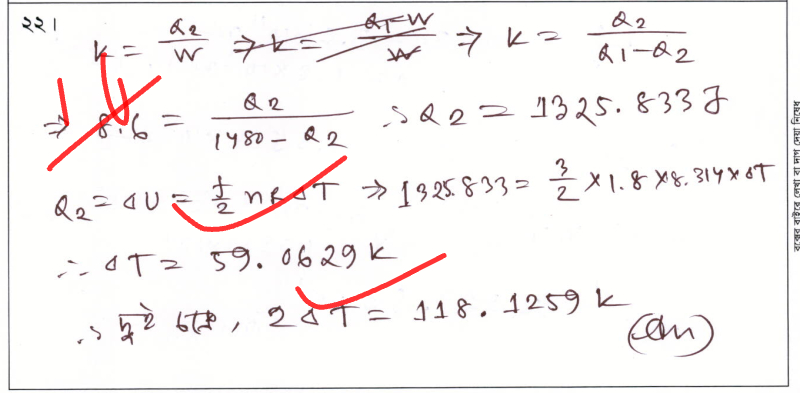 ২২।
k = Q2/W ⇒ k = Q1-W/W ⇒ k = Q2/Q1-Q2
⇒ 8.6 = Q2/1480 - Q2 ∴ Q2 = 1325.833 J
Q2 = ΔU = f/2 nRΔT ⇒ 1325.833 = 3/2 × 1.8 × 8.314 × ΔT
∴ ΔT = 59.0629 K
∴ 2ΔT = 118.1259 K
(Ans)
বক্সের বাইরে লেখা বা দাগ দেয়া নিষেধ